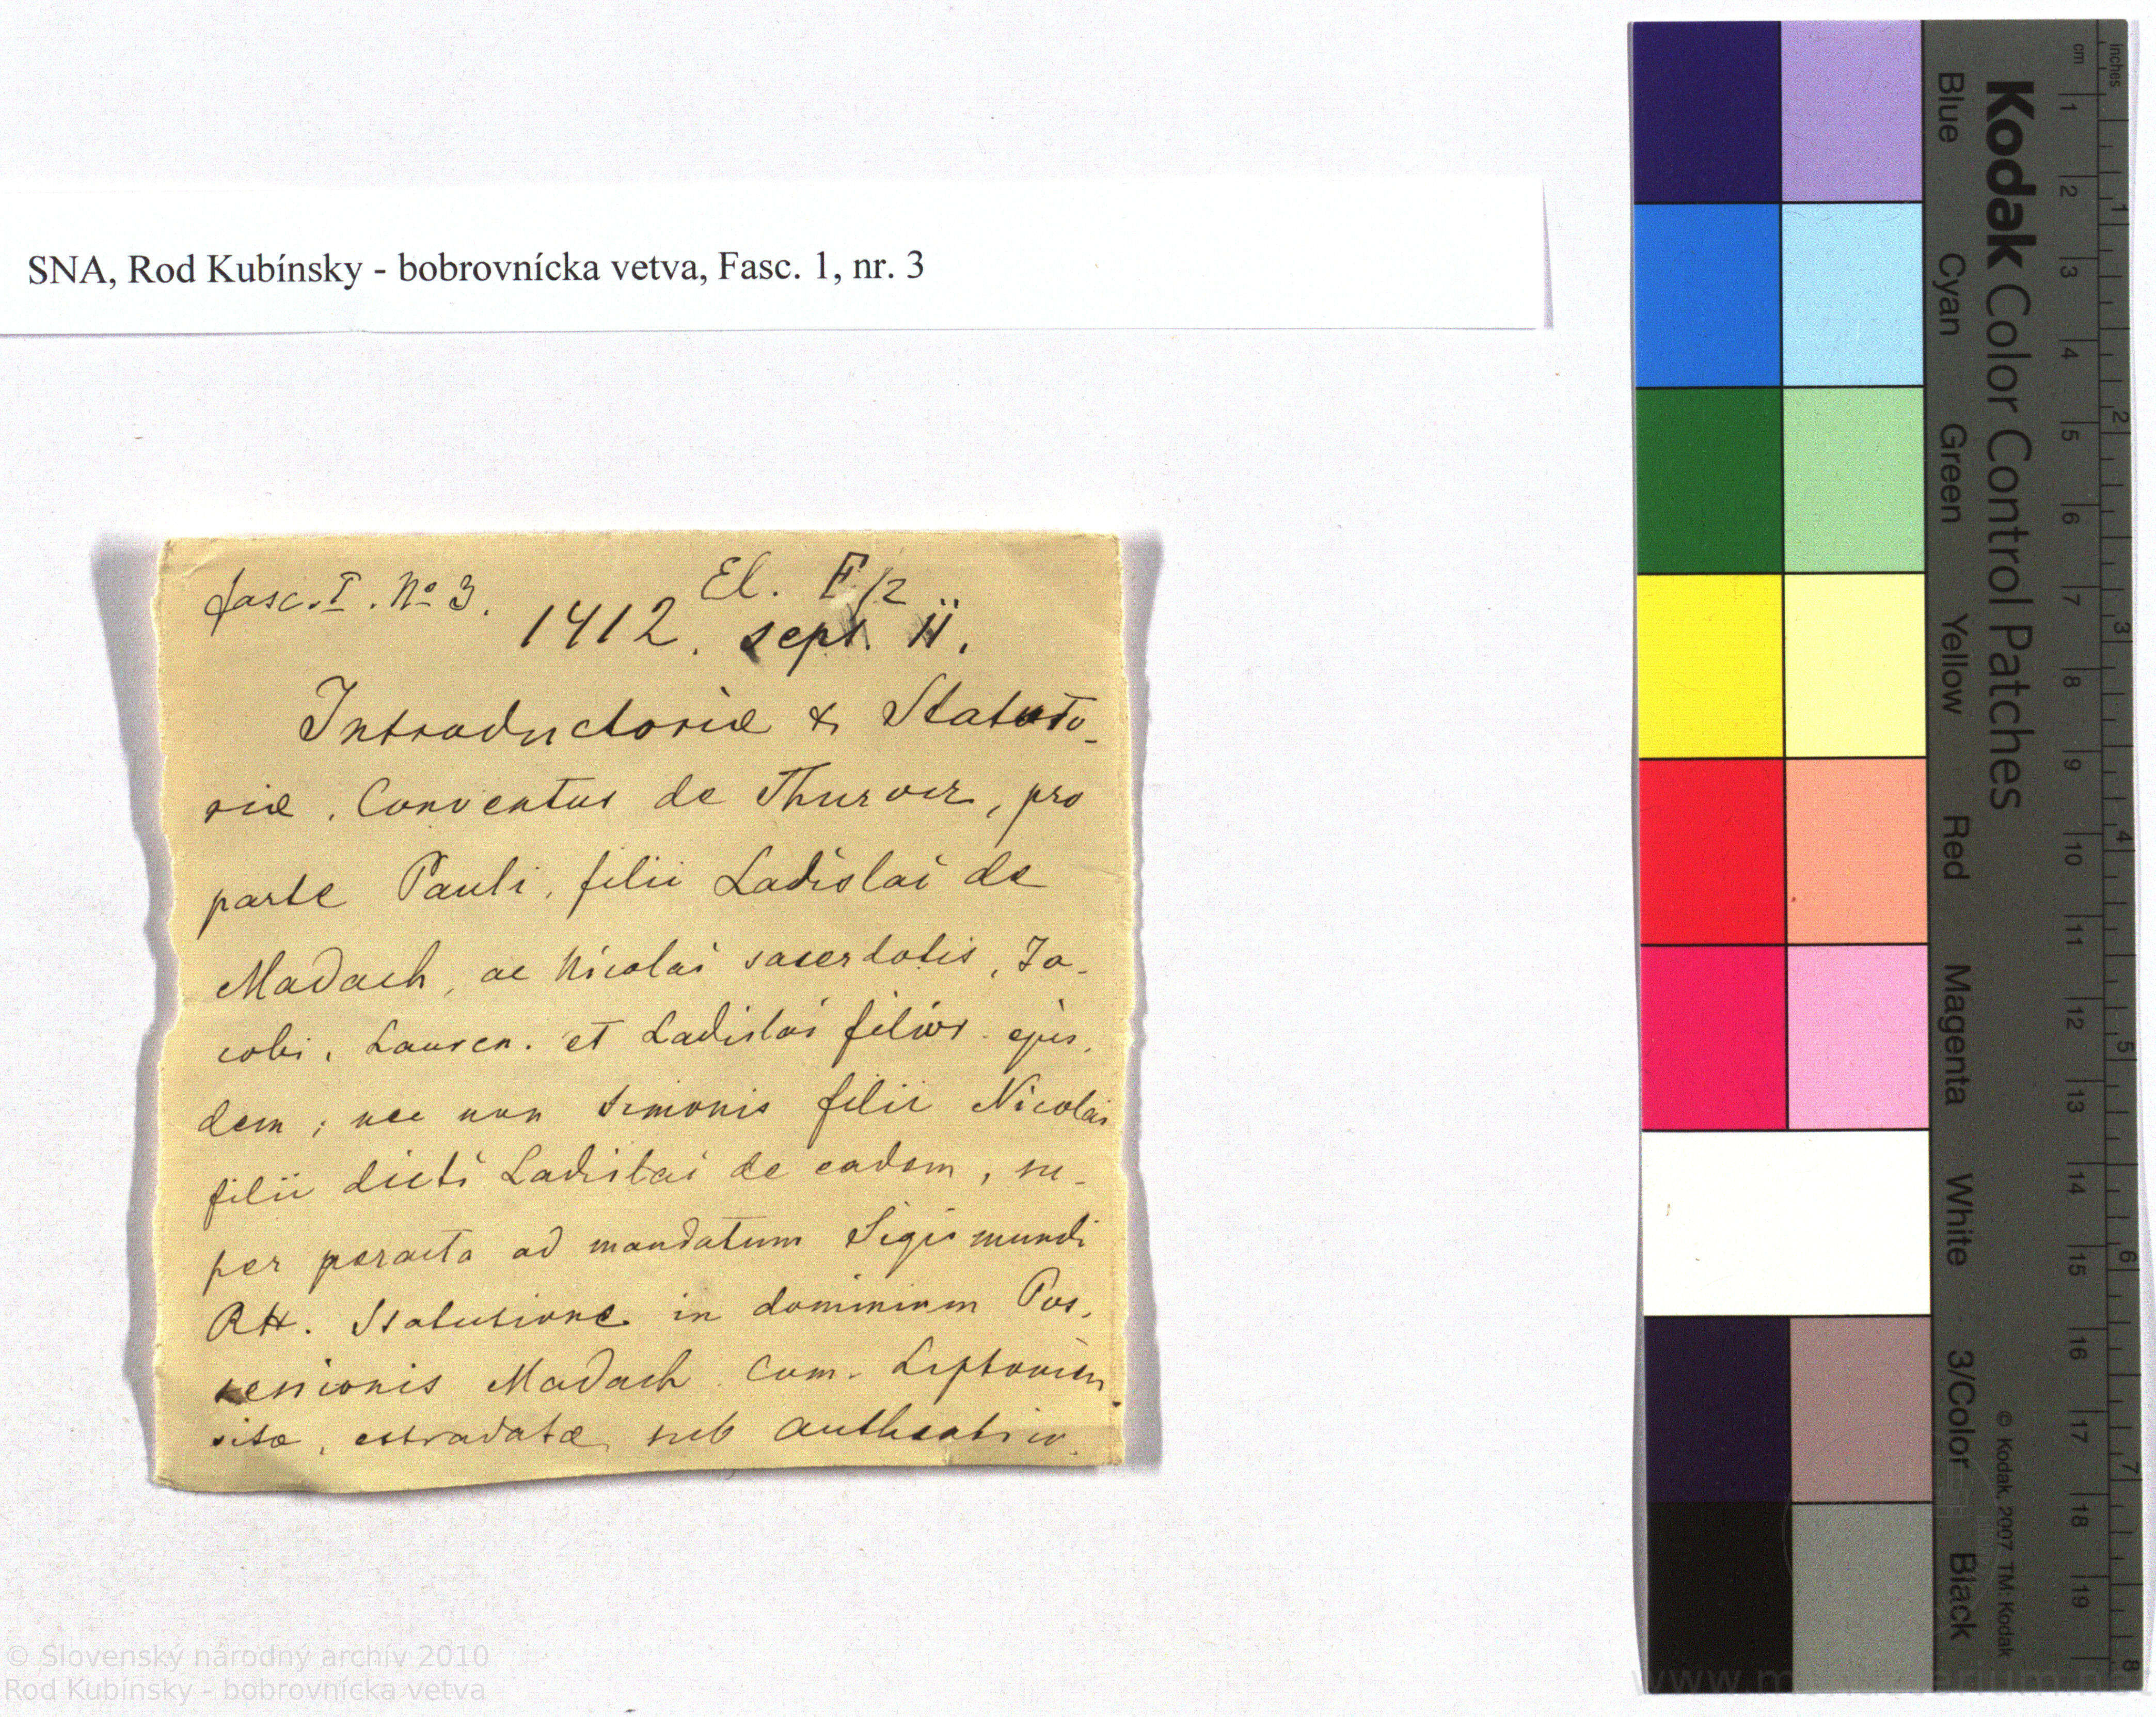 SNA, Rod Kubínsky - bobrovnícka vetva, Fasc. 1, nr. 3
fasc. I. No 3. El. F/2
1412. sept. 11.
Introductoriæ & Statuto-
riæ. Conventus de Thurocz, pro
parte Pauli, filii Ladislai de
Madach, ac Nicolai sacerdotis, Ja-
cobi, Lauren. et Ladislai filior. ejus.
dem; nec non Simonis filii Nicolai
filii dicti Ladislai de eadem, su-
per peracta ad mandatum Sigismundi
RH. Statutione in dominium Pos.
sessionis Madach Com. Liptovien
sita, extradatæ sub authentico.
Kodak Color Control Patches
Blue Cyan Green Yellow Red Magenta White 3/Color Black
© Kodak, 2007 TM: Kodak
cm 1 2 3 4 5 6 7 8 9 10 11 12 13 14 15 16 17 18 19
inches 1 2 3 4 5 6 7 8
© Slovenský národný archív 2010
Rod Kubínsky - bobrovnícka vetva